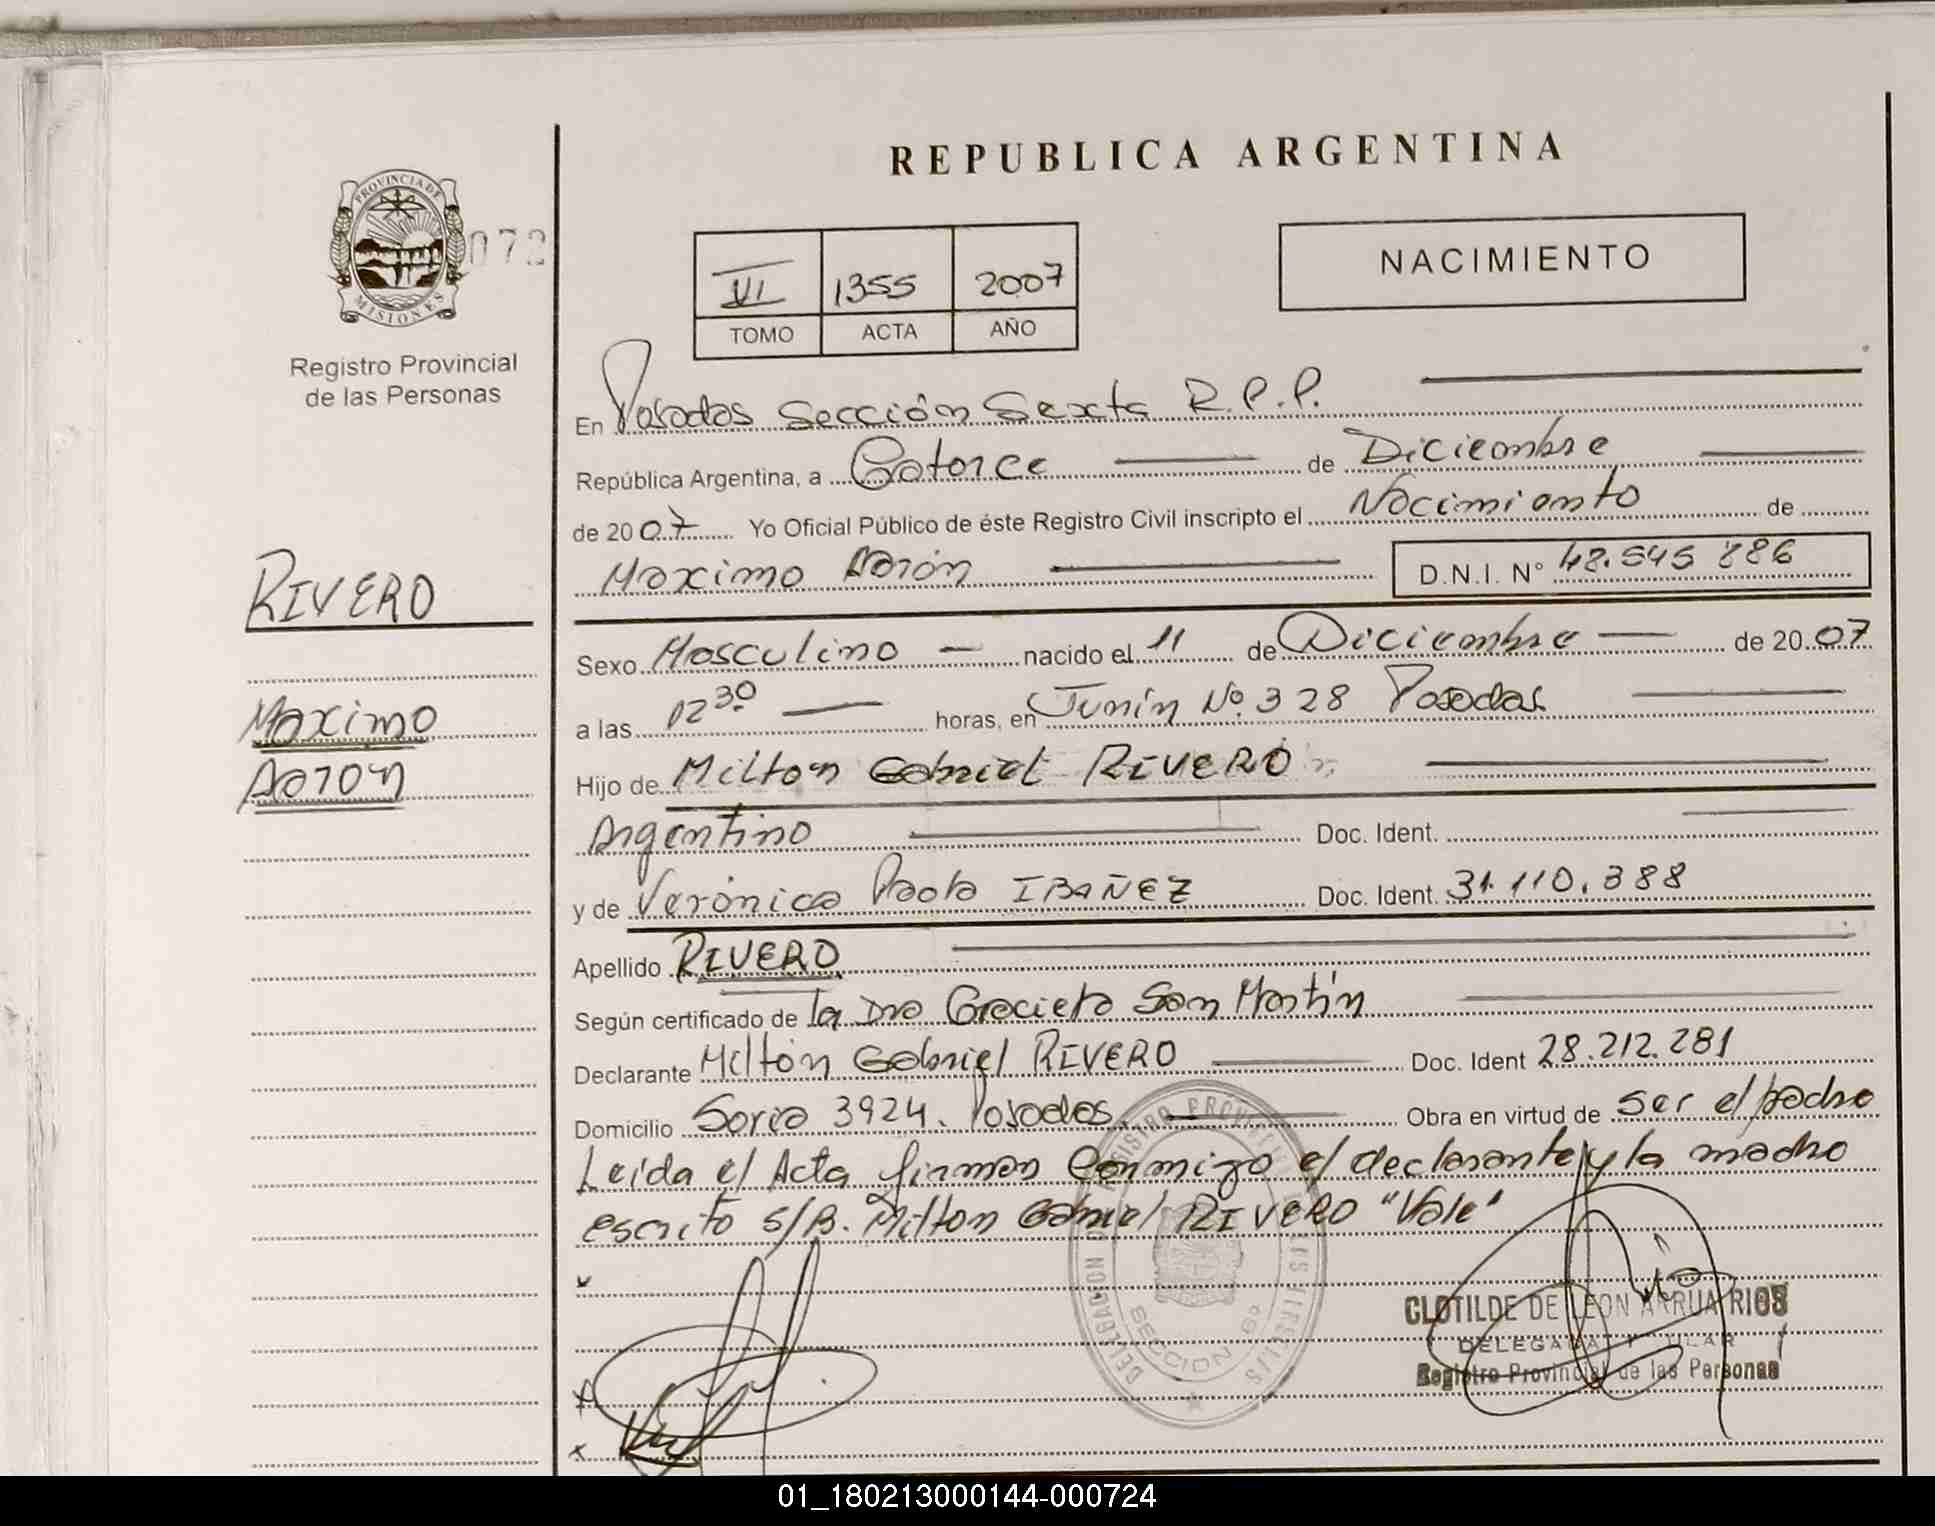 REPUBLICA ARGENTINA
PROVINCIA DE
MISIONES
072
Registro Provincial
de las Personas
VI 1355 2007
TOMO ACTA AÑO
NACIMIENTO
En Posadas Sección Sexta R.P.P.
República Argentina, a Catorce de Diciembre
de 2007 Yo Oficial Público de éste Registro Civil inscripto el Nacimiento de
Maximo Aarón D.N.I. N° 48.545 886
RIVERO
Maximo
Aaron
Sexo Masculino nacido el 11 de Diciembre de 2007
a las 12 30 horas, en Junín Nº 328 Posadas
Hijo de Milton Gabriel RIVERO
Argentino Doc. Ident.
y de Verónica Paola IBAÑEZ Doc. Ident. 31.110.388
Apellido RIVERO
Según certificado de la Dra Graciela San Martín
Declarante Milton Gabriel RIVERO Doc. Ident 28.212.281
Domicilio Soria 3924. Posadas. Obra en virtud de ser el padre
Leída el Acta firman conmigo el declarante y la madre
escrito S/B. Milton Gabriel RIVERO "Vale"
SECCION 6º
CLOTILDE DE LEON ARRUA RIOS
DELEGADA TITULAR
Registro Provincial de las Personas
01_180213000144-000724